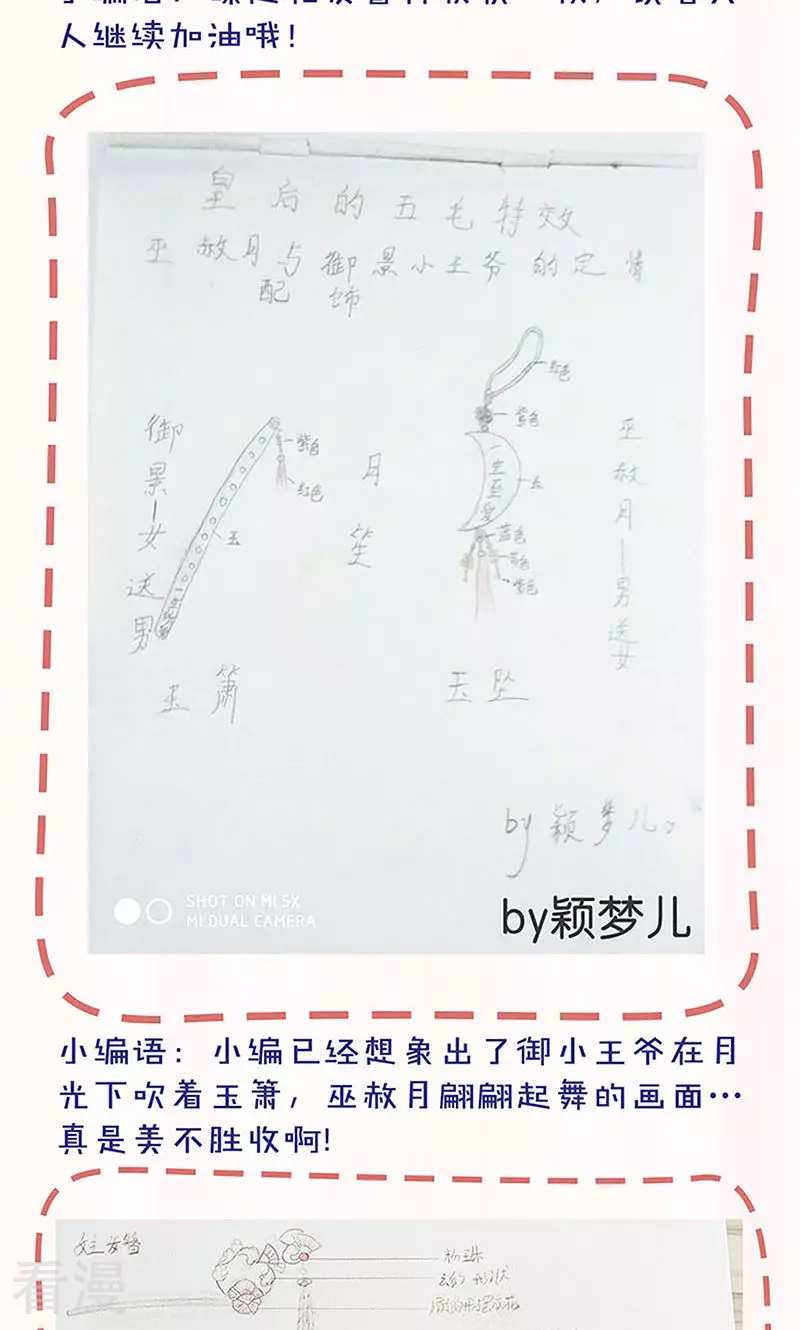 人继续加油哦!
皇后的五毛特效
巫赦月与御景小王爷的定情
配饰
御景—女送男
紫色
红色
玉
月笙
玉箫
红色
紫色
一生至爱
玉
蓝色
紫色
巫赦月—男送女
玉坠
by颖梦儿。
SHOT ON MI 5X
MI DUAL CAMERA
by颖梦儿
小编语：小编已经想象出了御小王爷在月
光下吹着玉箫，巫赦月翩翩起舞的画面…
真是美不胜收啊!
看漫